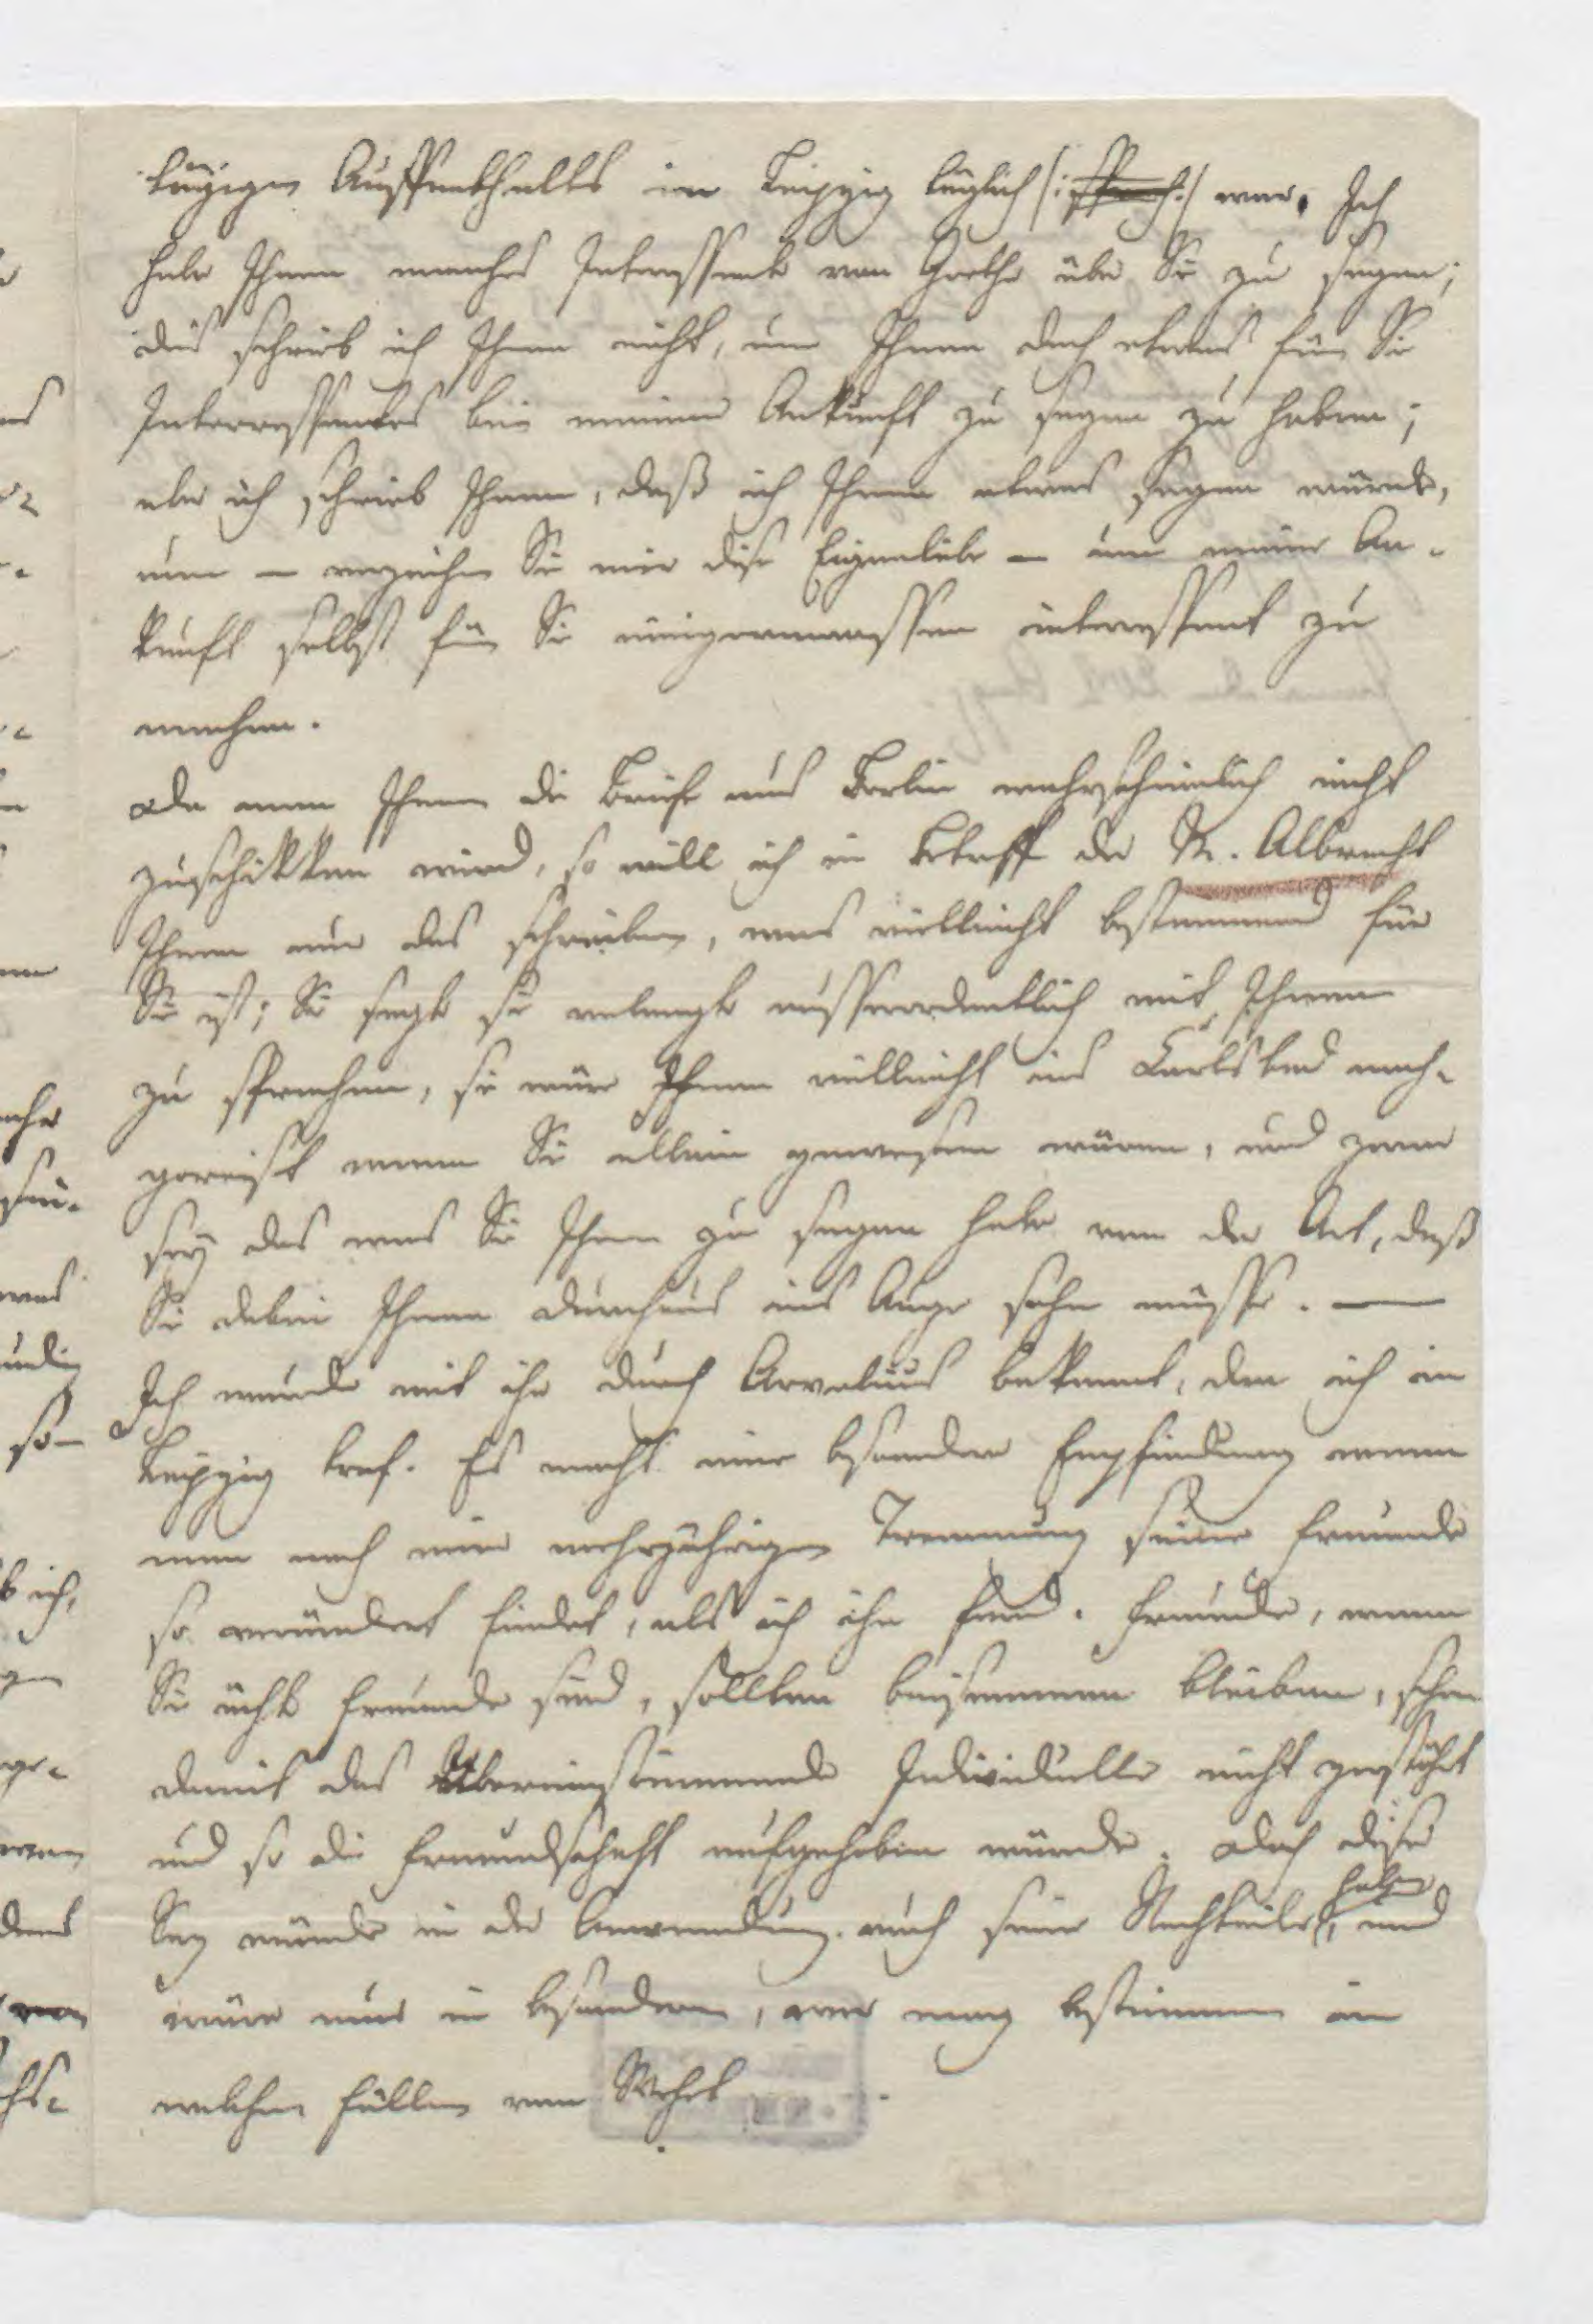 tägigen Auffenthalts in Leipzig täglich /: sprach :/ war. Ich
habe Ihnen manches Interessante von Goethe über Sie zu sagen;
dies schrieb ich Ihnen nicht, um Ihnen doch etwas für Sie
Interressantes bei meiner Ankunft zu sagen zu haben;
aber ich schrieb Ihnen, daß ich Ihnen etwas sagen würde,
um — verzeihen Sie mir diese Eigenliebe — um meine An-
kunft selbst für Sie einigermaassen interessant zu
machen.
Da man Ihnen die Briefe aus Berlin wahrscheinlich nicht
zuschikken wird, so will ich in Betreff der M. Albrecht
Ihnen nur das schreiben, was vielleicht bestimmend für
Sie ist; Sie sagte sie verlangte ausserordentlich mit Ihnen
zu sprechen, sie wäre Ihnen vielleicht ins Carlsbad nach-
gereist wenn Sie allein gewesen wären, und zwar
sey das was Sie Ihnen zu sagen habe von der Art, daß
Sie dabei Ihnen durchaus ins Auge sehn müsse. —
Ich wurde mit ihr durch Arvelius bekannt, den ich in
Leipzig traf. Es macht eine besondere Empfindung wenn
man nach einer mehrjährigen Trennung seine Freunde
so verändert findet, als ich ihn fand. Freunde, wenn
Sie ächte Freunde sind, sollten beisammen bleiben, schon
damit das Übereinstimmende Individuelle nicht zerstöhrt
und so die Freundschaft aufgehoben würde. Doch dieser
Saz würde in der Anwendung auch seine Nachtheile haben, und
wäre nur in besondern, wer mag bestimmen in
welchen Fällen von Werth.